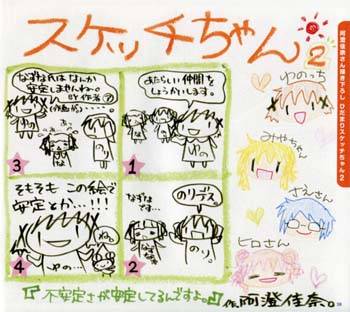 スケッチちゃん
2
阿澄佳奈さん描き下ろし ひだまりスケッチちゃん2
ゆのっち
みやちゃん
さえさん
ヒロさん
1
あたらしい仲間を
しょうかいします。
2
なずな
です…
のリデス
3
なずな氏はなんか
安定しませんねー。
by 作者
4
そもそも この絵で
安定とか…!!!
ゆの…
『不安定さが安定してるんですよ。』
作、阿澄佳奈。